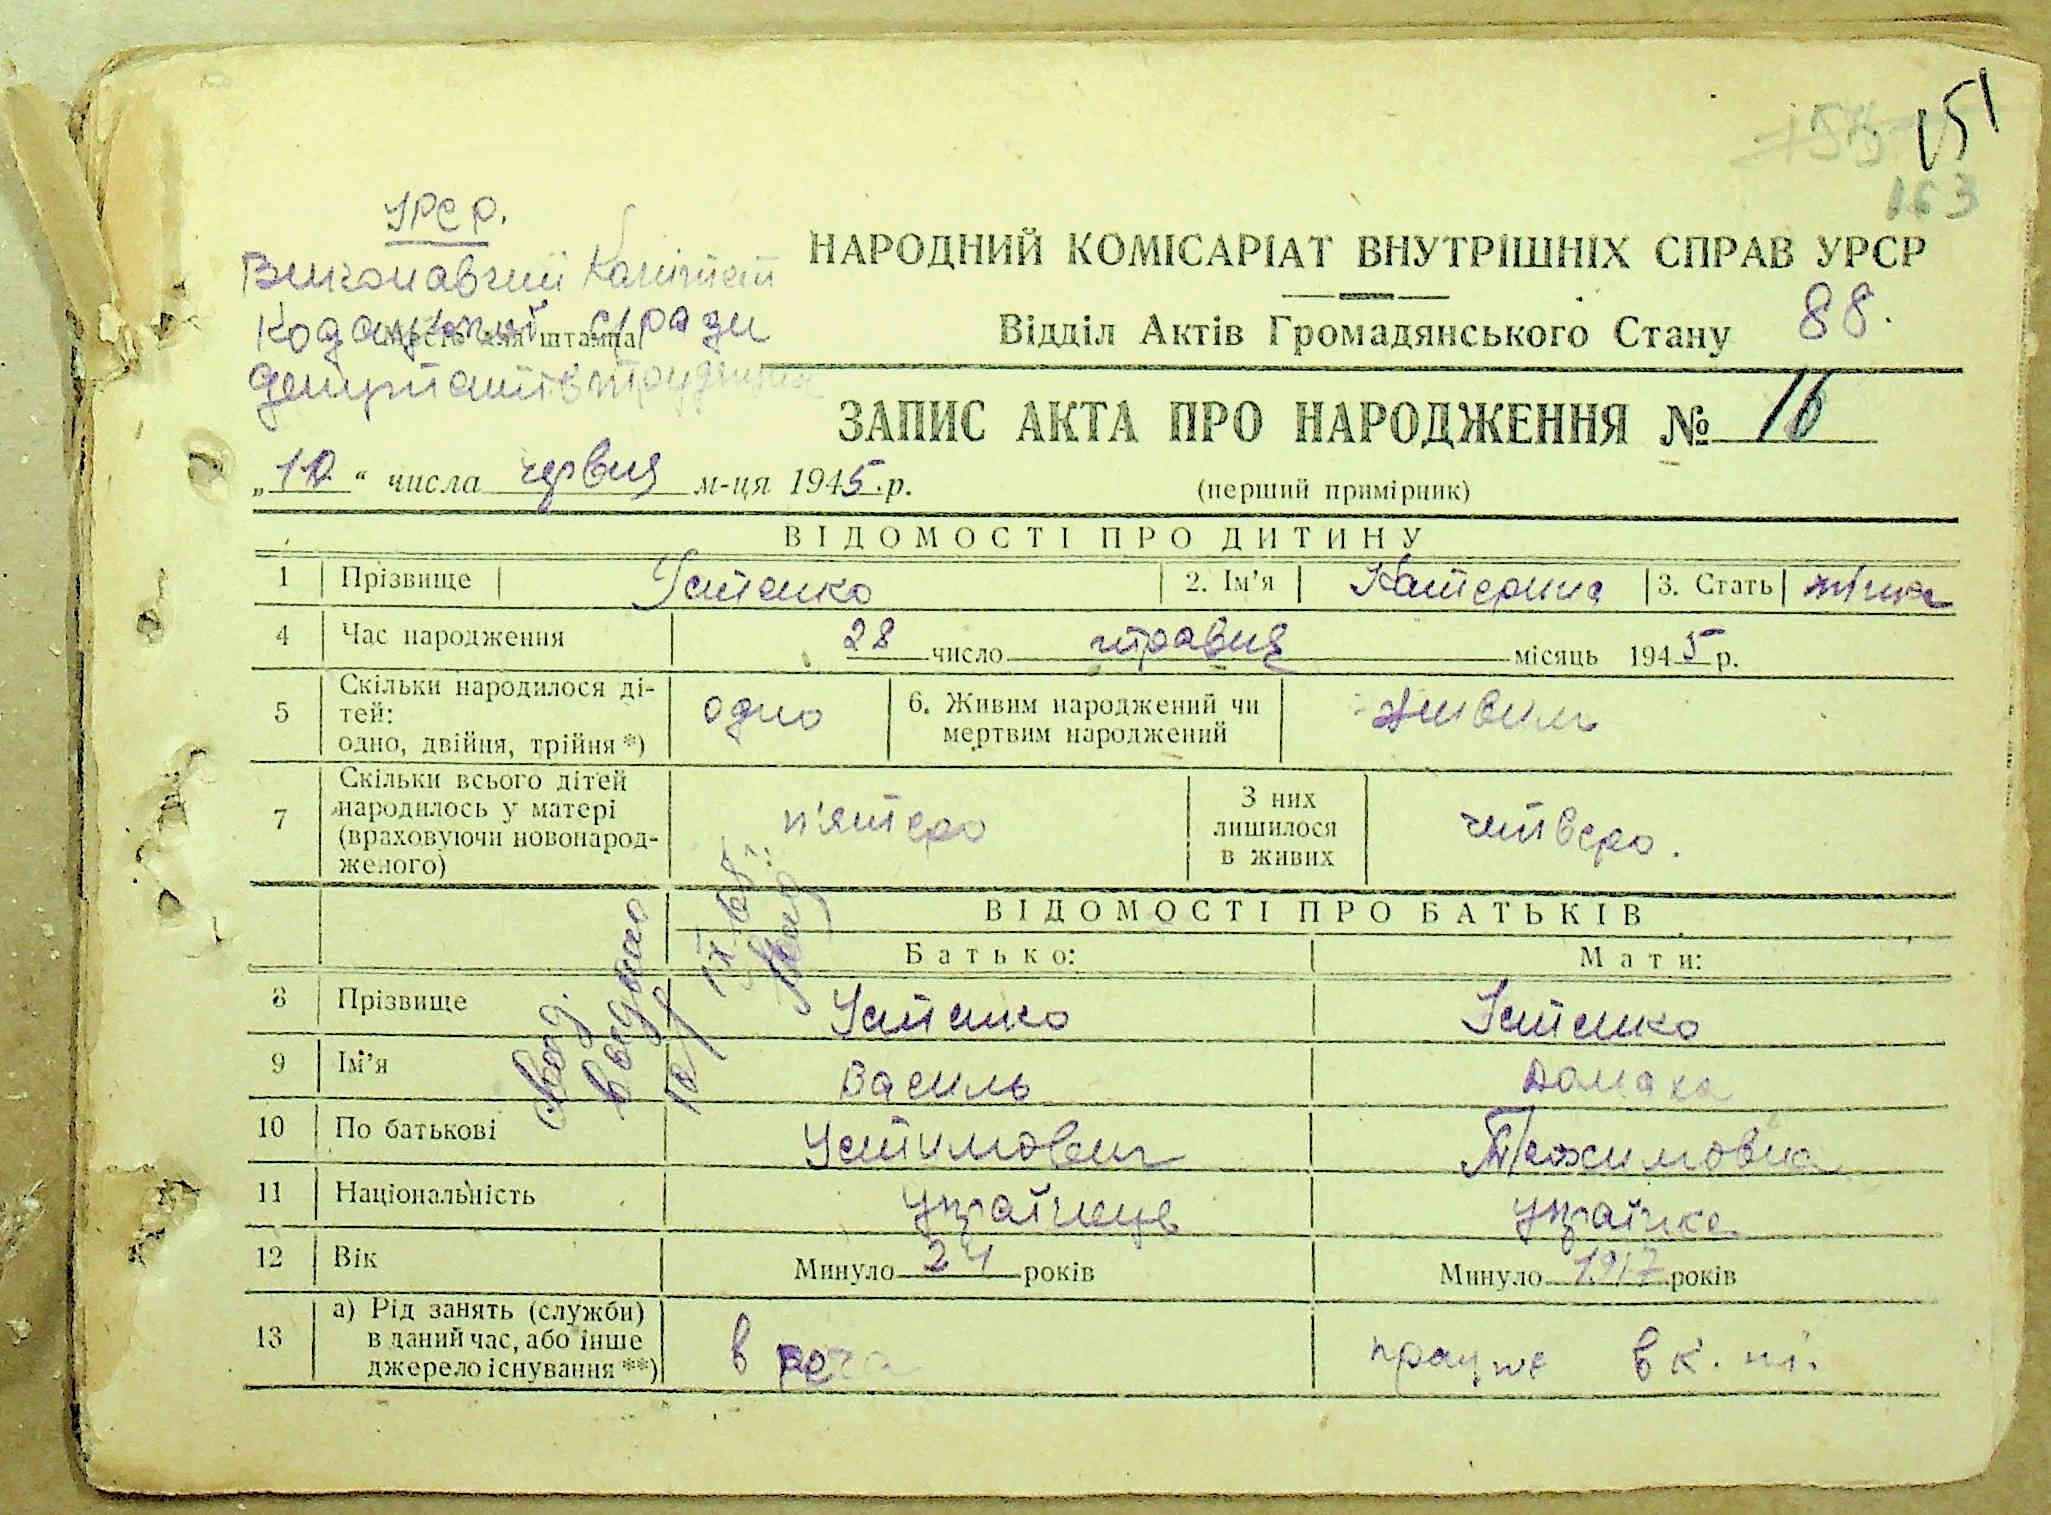 151
163
УРСР.
Виконавчий Комітет
НАРОДНИЙ КОМІСАРІАТ ВНУТРІШНІХ СПРАВ УРСР
с/ради
Відділ Актів Громадянського Стану 88.
депутатів трудящих
ЗАПИС АКТА ПРО НАРОДЖЕННЯ № 16
„10“ числа червня м-ця 1945.р.
(перший примірник)
ВІДОМОСТІ ПРО ДИТИНУ
1 Прізвище Устенко 2. Ім’я Катерина 3. Стать жіноча
4 Час народження 28 число травня місяць 1945 р.
5 Скільки народилося ді-
тей:
одно, двійня, трійня *) одно 6. Живим народжений чи
мертвим народжений живим
7 Скільки всього дітей
народилось у матері
(враховуючи новонарод-
женого) п'ятеро З них
лишилося
в живих четверо.
ВІДОМОСТІ ПРО БАТЬКІВ
Батько: Мати:
8 Прізвище Устенко Устенко
9 Ім’я Василь Домаха
10 По батькові Устимович
11 Національність українець українка
12 Вік Минуло 24 років Минуло 1917 років
13 а) Рід занять (служби)
в даний час, або інше
джерело існування **) в працює в к.